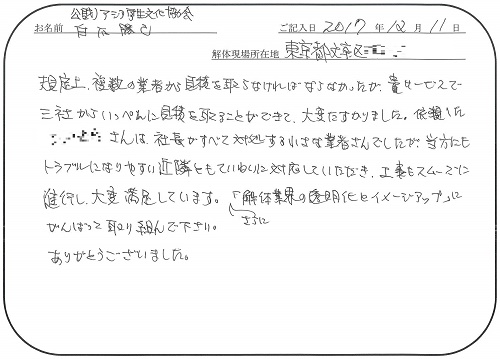 公財)アジア学生文化協会
お名前 白石勝己 ご記入日 2017 年 12 月 11 日
解体現場所在地 東京都文京区
規定上、複数の業者から見積を取らなければならなかったが、貴サービスで
三社からいっぺんに見積を取ることができて、大変たすかりました。依頼した
さんは、社長がすべて対処する小さな業者さんでしたが、当方にも
トラブルになりやすい近隣にもていねいに対応していただき、工事もスムーズに
進行し、大変満足しています。「解体業界の透明化とイメージアップ」に
さらに
がんばって取り組んで下さい。
ありがとうございました。